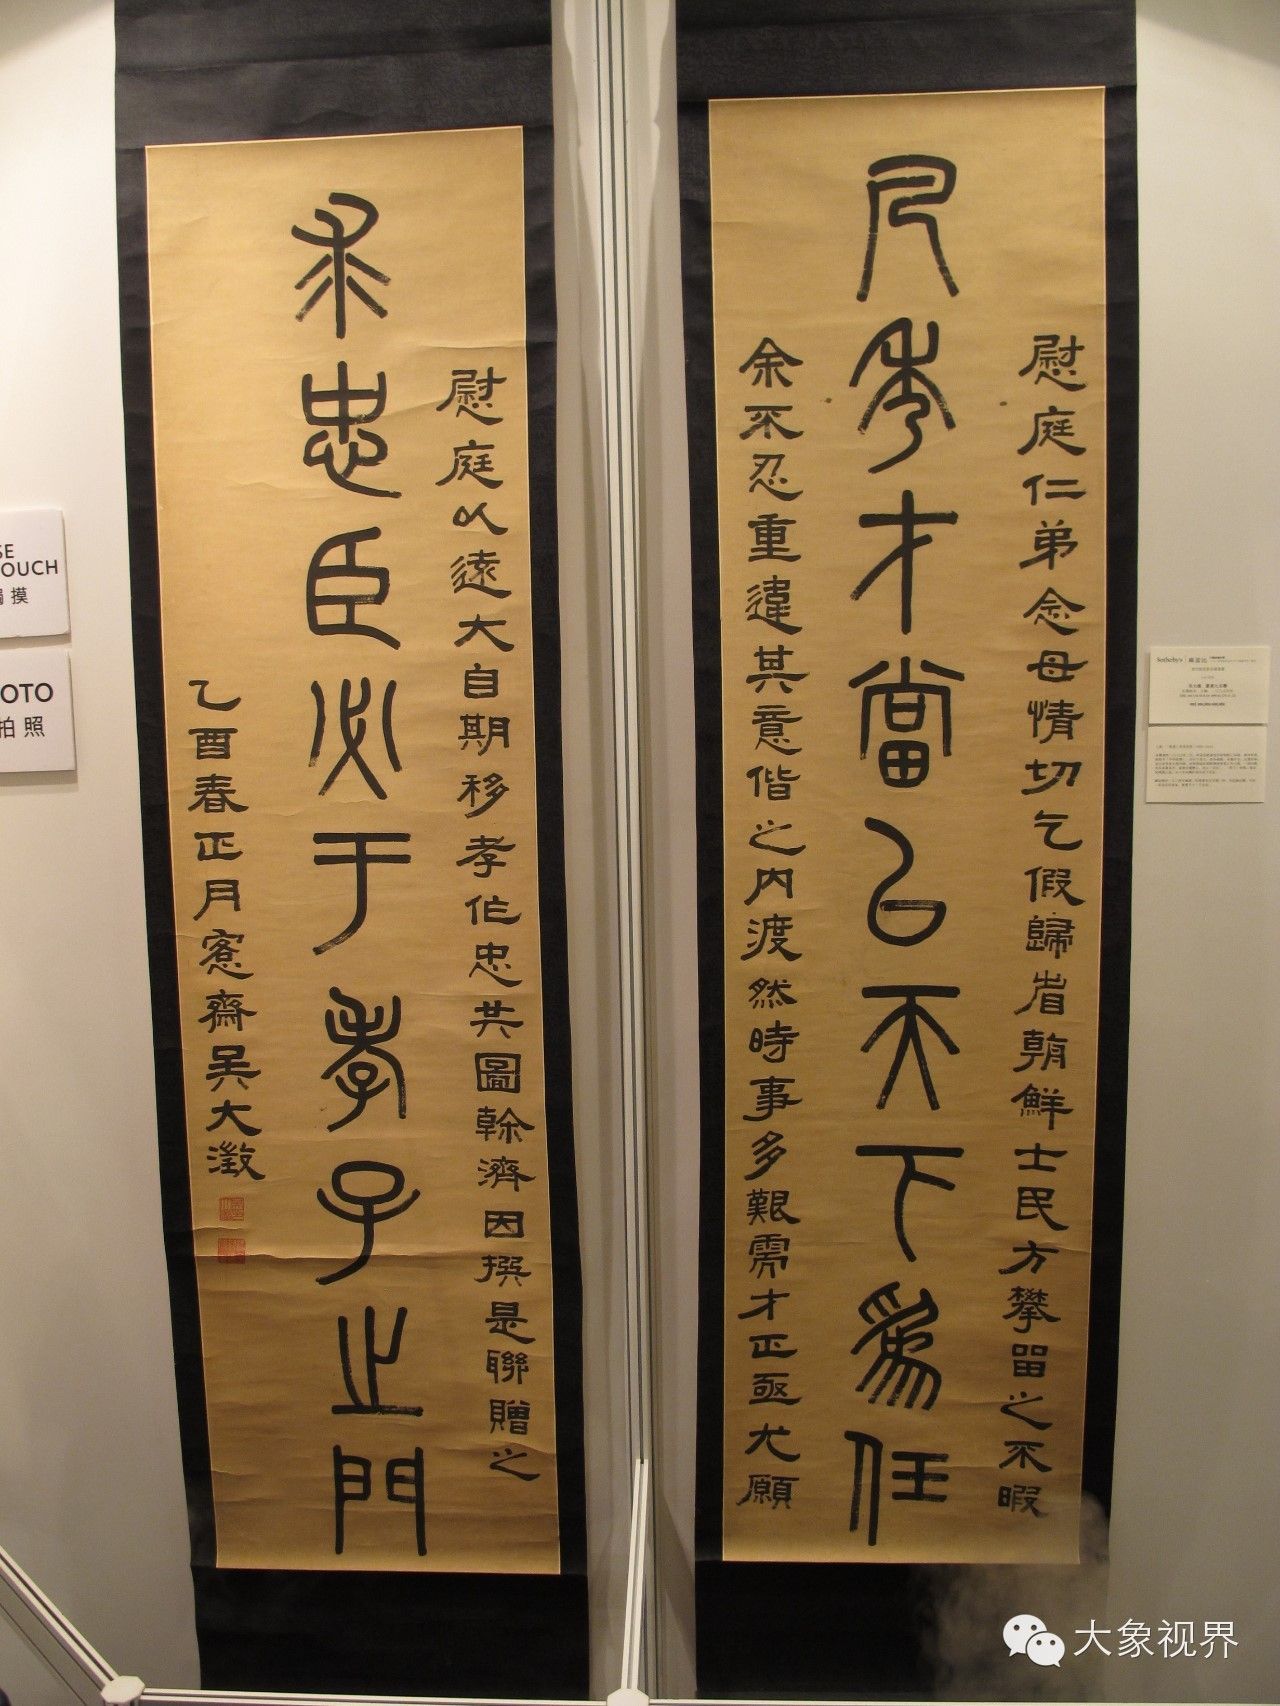 慰庭仁弟念母情切乞假歸省朝鮮士民方攀留之不暇
凡秀才當以天下為任
余不忍重違其意偕之內渡然時事多艱需才正亟尤願
慰庭以遠大自期移孝作忠共圖幹濟因撰是聯贈之
求忠臣必于孝子之門
乙酉春正月愙齋吳大澂
SE
OUCH
摸
OTO
拍照
Sotheby's
大象视界